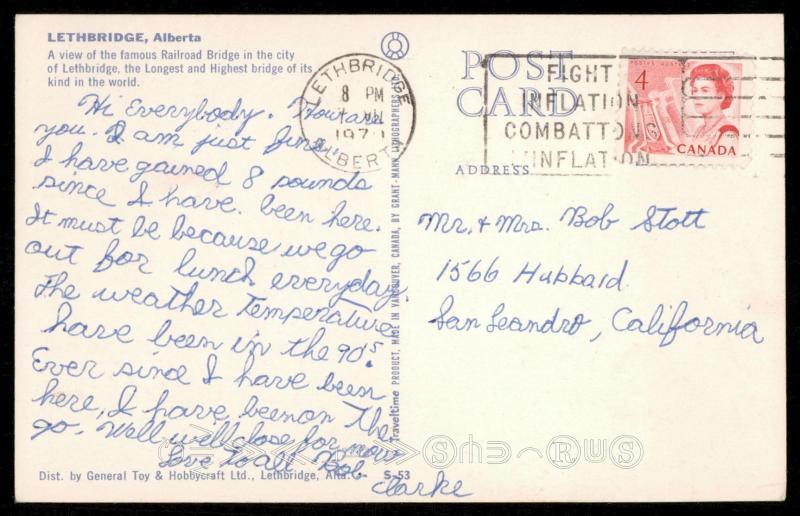 LETHBRIDGE, Alberta
A view of the famous Railroad Bridge in the city
of Lethbridge, the Longest and Highest bridge of its
kind in the world.
Hi Everybody. How are
you. I am just fine.
I have gained 8 pounds
since I have been here.
It must be because we go
out for lunch everyday.
The weather Temperature
have been in the 90s.
Ever since I have been
here, I have been on the
go. Well we'll close for now
Love To all Bob
Clarke
Dist. by General Toy & Hobbycraft Ltd., Lethbridge, Alta.
S-53
Traveltime PRODUCT, MADE IN VANCOUVER, CANADA, BY GRANT-MANN LITHOGRAPHERS
POST
CARD
ADDRESS
LETHBRIDGE
8 PM
197
ALBERTA
FIGHT
INFLATION
COMBATTONS
L'INFLATION
POSTES POSTAGE
4
CANADA
Mr. & Mrs. Bob Stott
1566 Hubbard
San Leandro, California
RUS